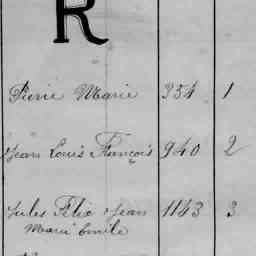 R
Pierre Marie 354 1
Jean Louis François 940 2
Jules Félix Jean 1143 3
Marie Emile